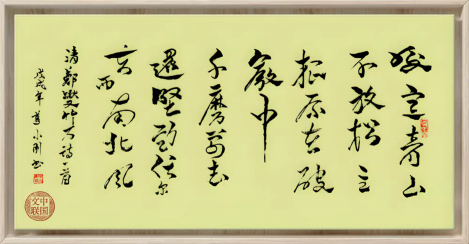 咬定青山
不放松立
根原在破
巖中
千磨萬击
還堅劲任尔
东西南北風
清鄭燮竹石詩一首
戊戌年小刚书
中国文联